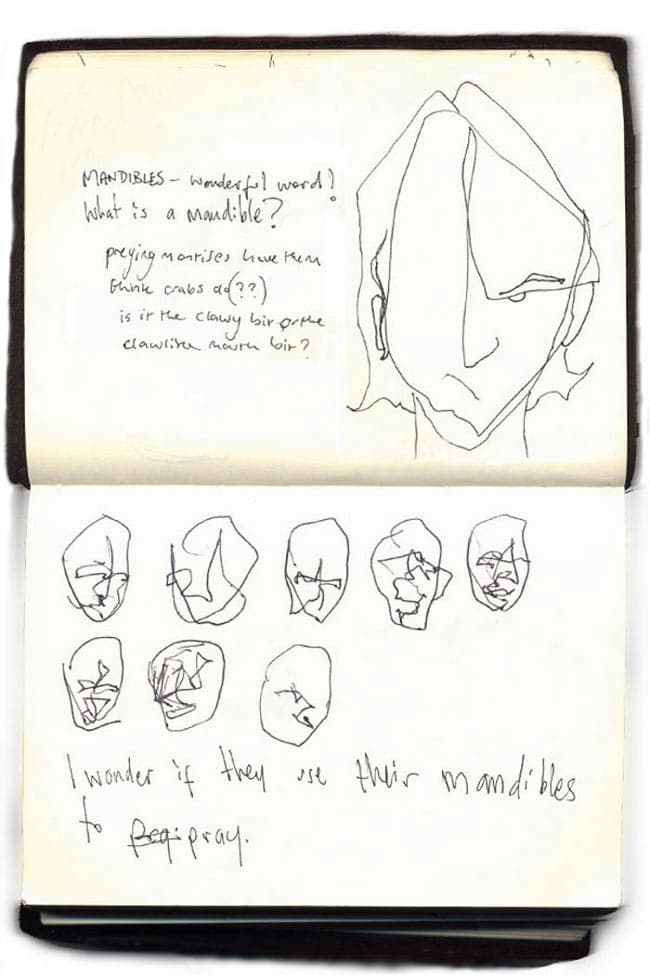 MANDIBLES – wonderful word!
What is a mandible?
preying mantises have them
think crabs do (??)
is it the clawy bit or the
clawlike mouth bit?
I wonder if they use their mandibles
to pray.